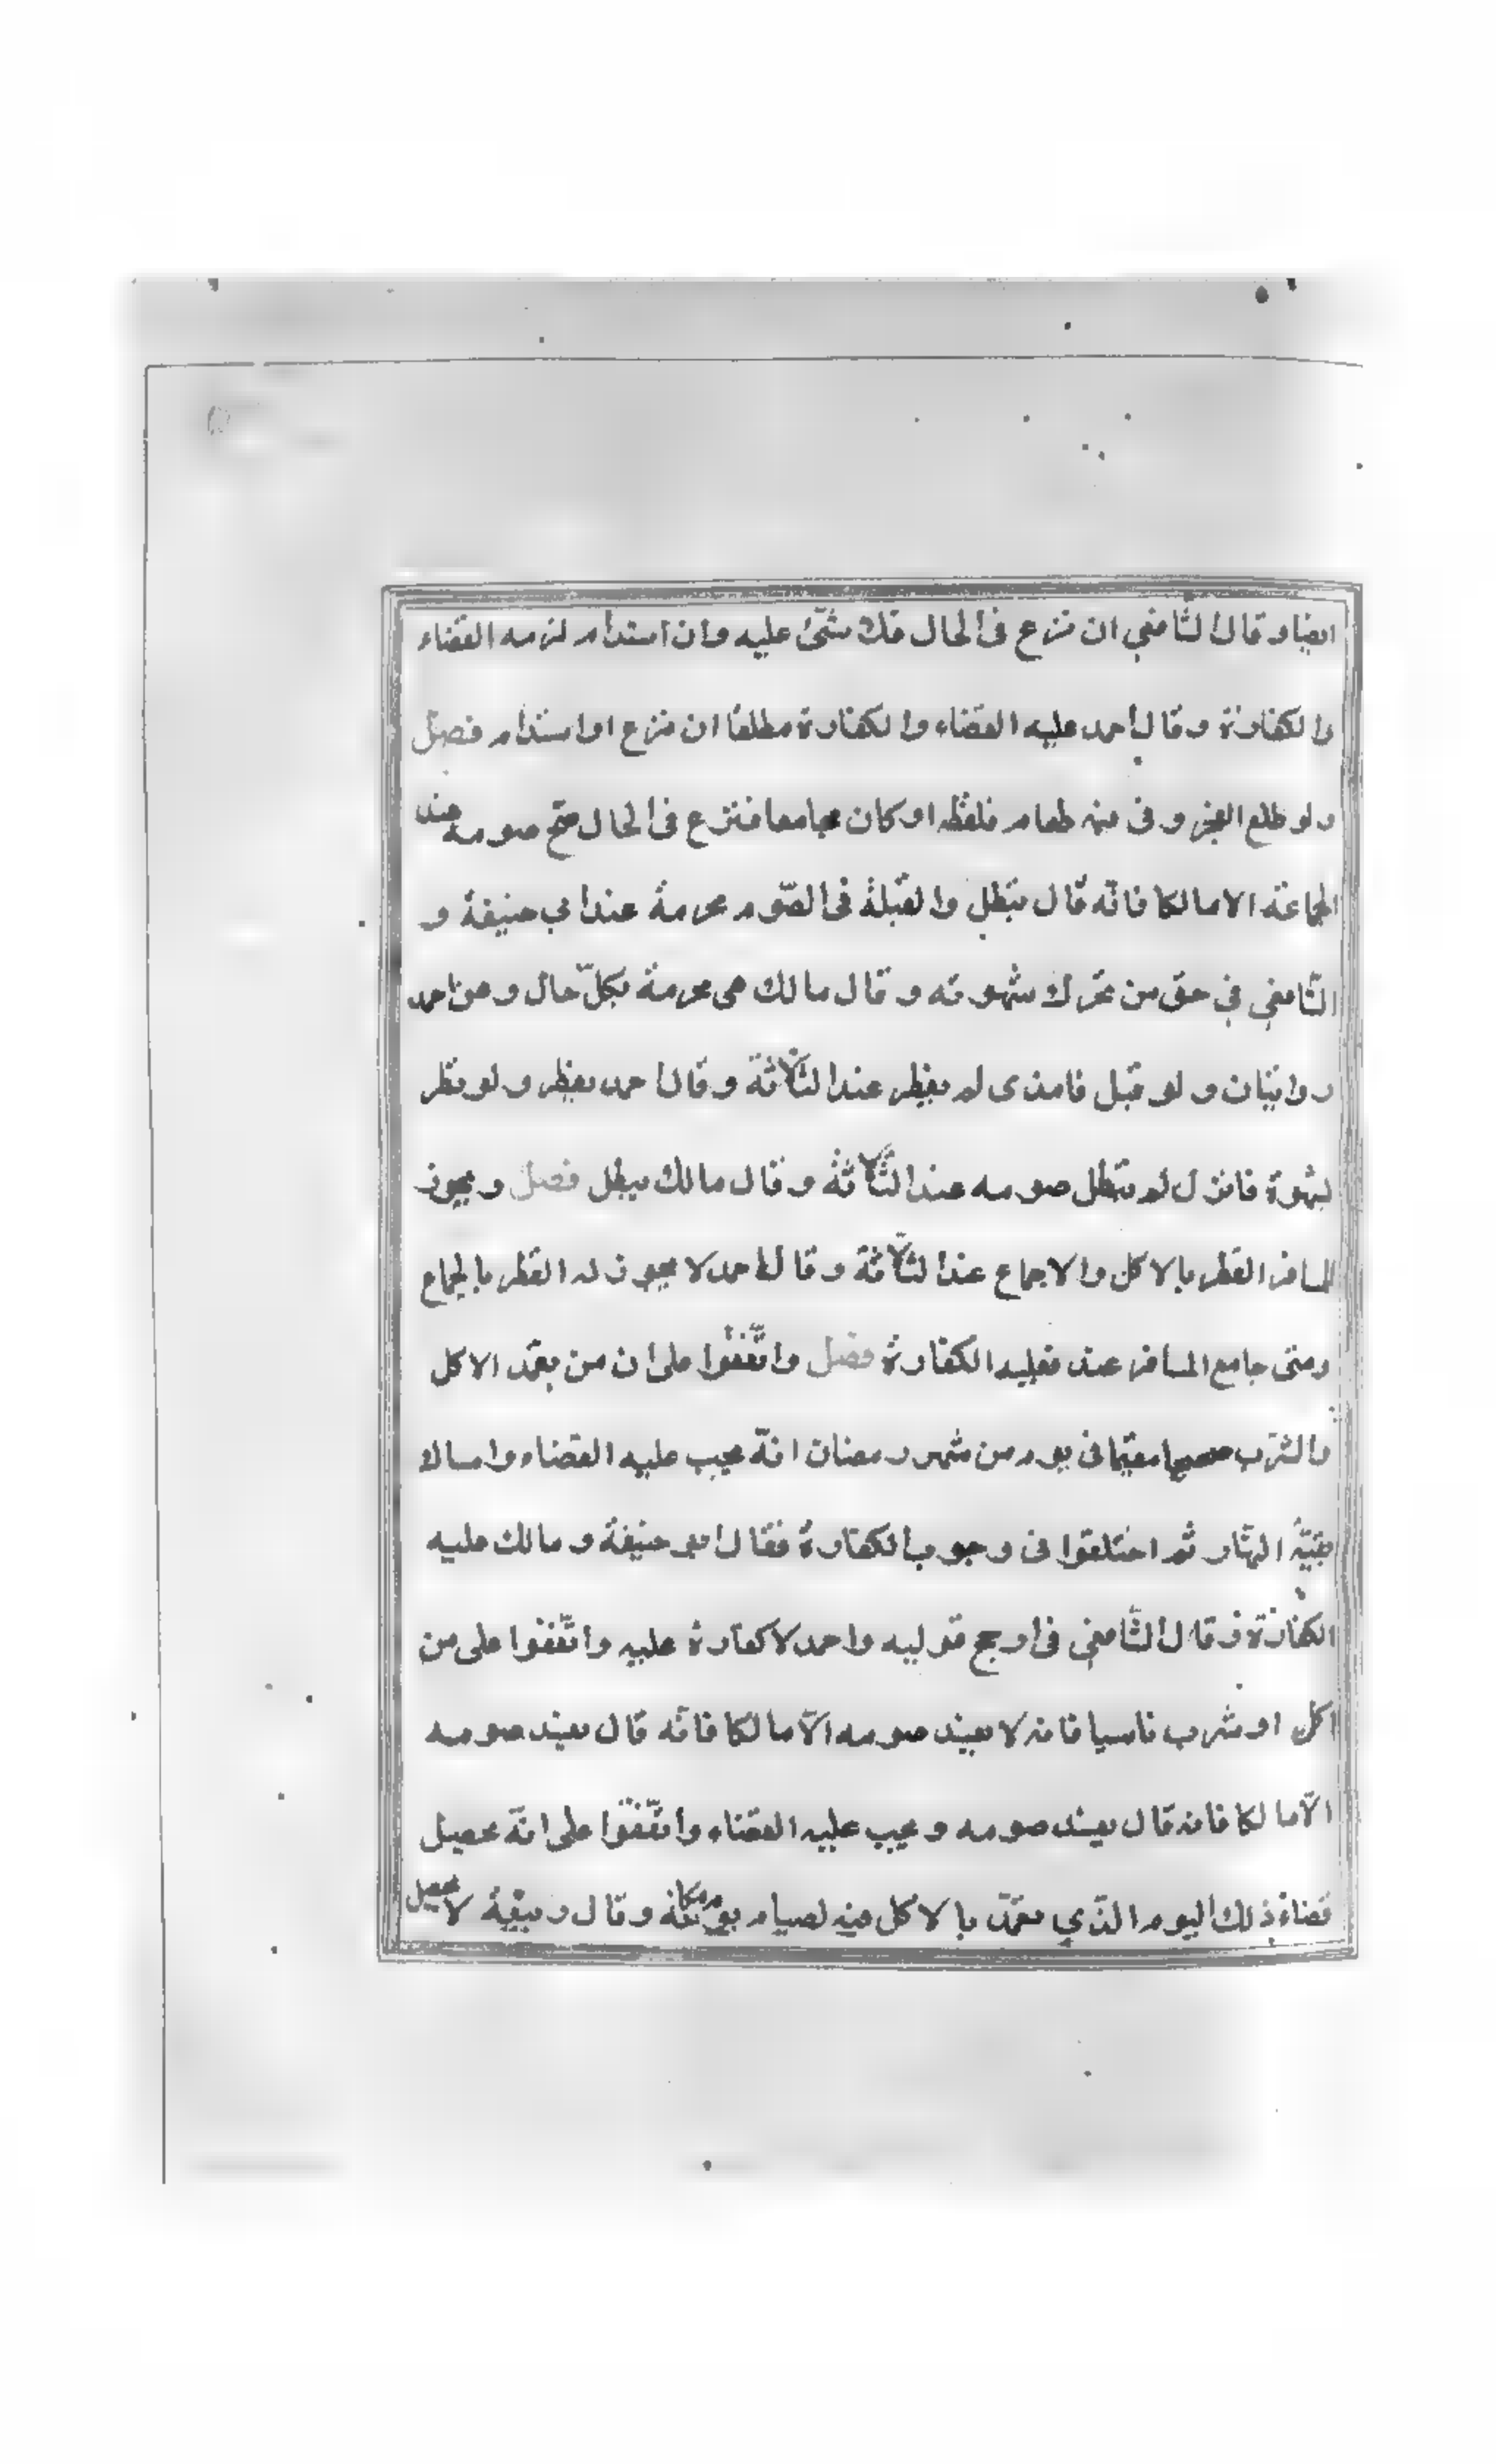 ايضا وقال الشافعي ان نزع في الحال فلا شئ عليه وان استدام لزمه القضاء
والكفارة وقال أحمد عليه القضاء والكفارة مطلقا ان نزع او استدام فصل
ولو طلع الفجر وفي فيه طعام فلفظه او كان مجامعا فنزع في الحال صح صومه عند
الجماعة الا مالكا فانّه قال يبطل والقبلة في الصّوم محرمة عند ابي حنيفة و
الشّافعي في حق من تحرك شهوته وقال مالك هي محرمة بكلّ حال وعن احمد
روايتان ولو قبل فامذى لم يفطر عند الثّلاثة وقال احمد يفطر ولو نظر
بشهوة فانزل لم يبطل صومه عند الثّلاثة وقال مالك يبطل فصل ويجوز
للمسافر الفطر بالاكل والاجماع عند الثلاثة وقال احمد لا يجوز له الفطر بالجماع
ومتى جامع المسافر عنده فعليه الكفارة فصل واتّفقوا على ان من تعمّد الاكل
والشرب صحيحا مقيما في يوم من شهر رمضان انّه يجب عليه القضاء وامساك
بقيّة النهار ثم اختلفوا في وجوب الكفارة فقال ابو حنيفة ومالك عليه
الكفارة وقال الشّافعي في ارجح قوليه واحمد لا كفارة عليه واتّفقوا على من
اكل او شرب ناسيا فانه لا يعيد صومه الاّ مالكا فانّه قال يعيد صومه
الاّ مالكا فانه قال يعيد صومه ويجب عليه القضاء واتّفقوا على انّه يحصل
قضاء ذلك اليوم الذي تعمّد بالاكل فيه لصيام يوم مكانه وقال ربيعة لا يحصل